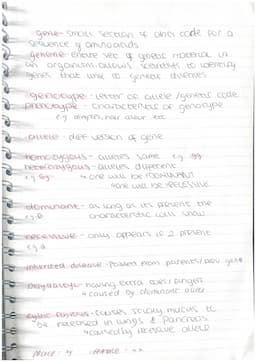 gene - small section of DNA code for a
sequence of amino acids
genome - entire set of genetic material in
an organism. allows scientists to identify
genes that link to genetic diseases
genotype - letter of allele / genetic code
phenotype - characteristic of genotype
e.g dimples, hair colour etc
allele - diff version of gene
homozygous - alleles same e.g gg
heterozygous - alleles different
e.g Gg
one will be DOMINANT
one will be RECESSIVE
dominant - as long as its present the
characteristic will show
recessive - only appears if 2 present
inherited disease - passed from parents /
polydactyly - having extra toes / fingers
caused by dominant allele
cystic fibrosis - causes sticky mucus to
be released in lungs & pancreas
caused by recessive allele